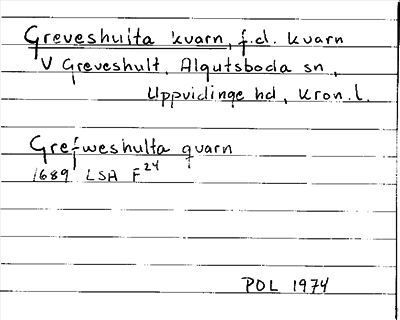 Greveshulta kvarn, f.d. kvarn
V Greveshult, Algutsboda sn,
Uppvidinge hd, Kron.l.
Grefweshulta qvarn
1689 LSA F24
POL 1974